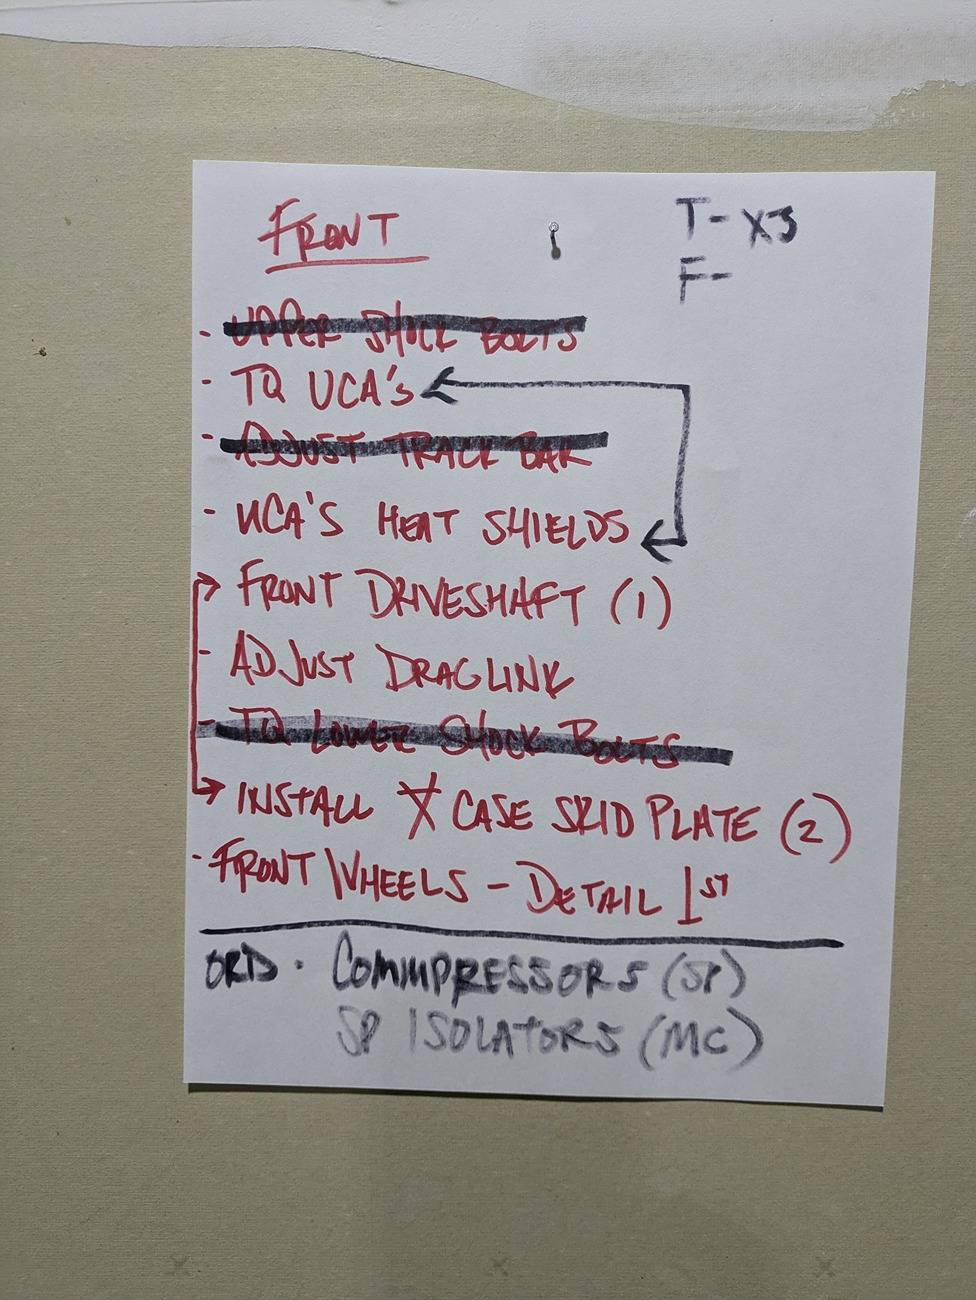 FRONT
T- X3
F-
- UPPER SHOCK BOLTS
- TQ UCA's
- ADJUST TRACK BAR
- UCA'S HEAT SHIELDS
FRONT DRIVESHAFT (1)
- ADJUST DRAGLINK
- TQ LOWER SHOCK BOLTS
INSTALL X CASE SKID PLATE (2)
- FRONT WHEELS - DETAIL 1ST
ORD. COMMPRESSORS (SP)
SP ISOLATORS (MC)